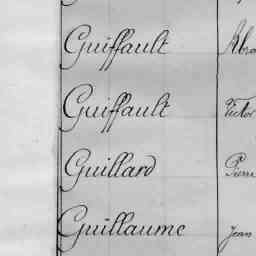 Guiffault
Guiffault Victor
Guillard Pierre
Guillaume Jean